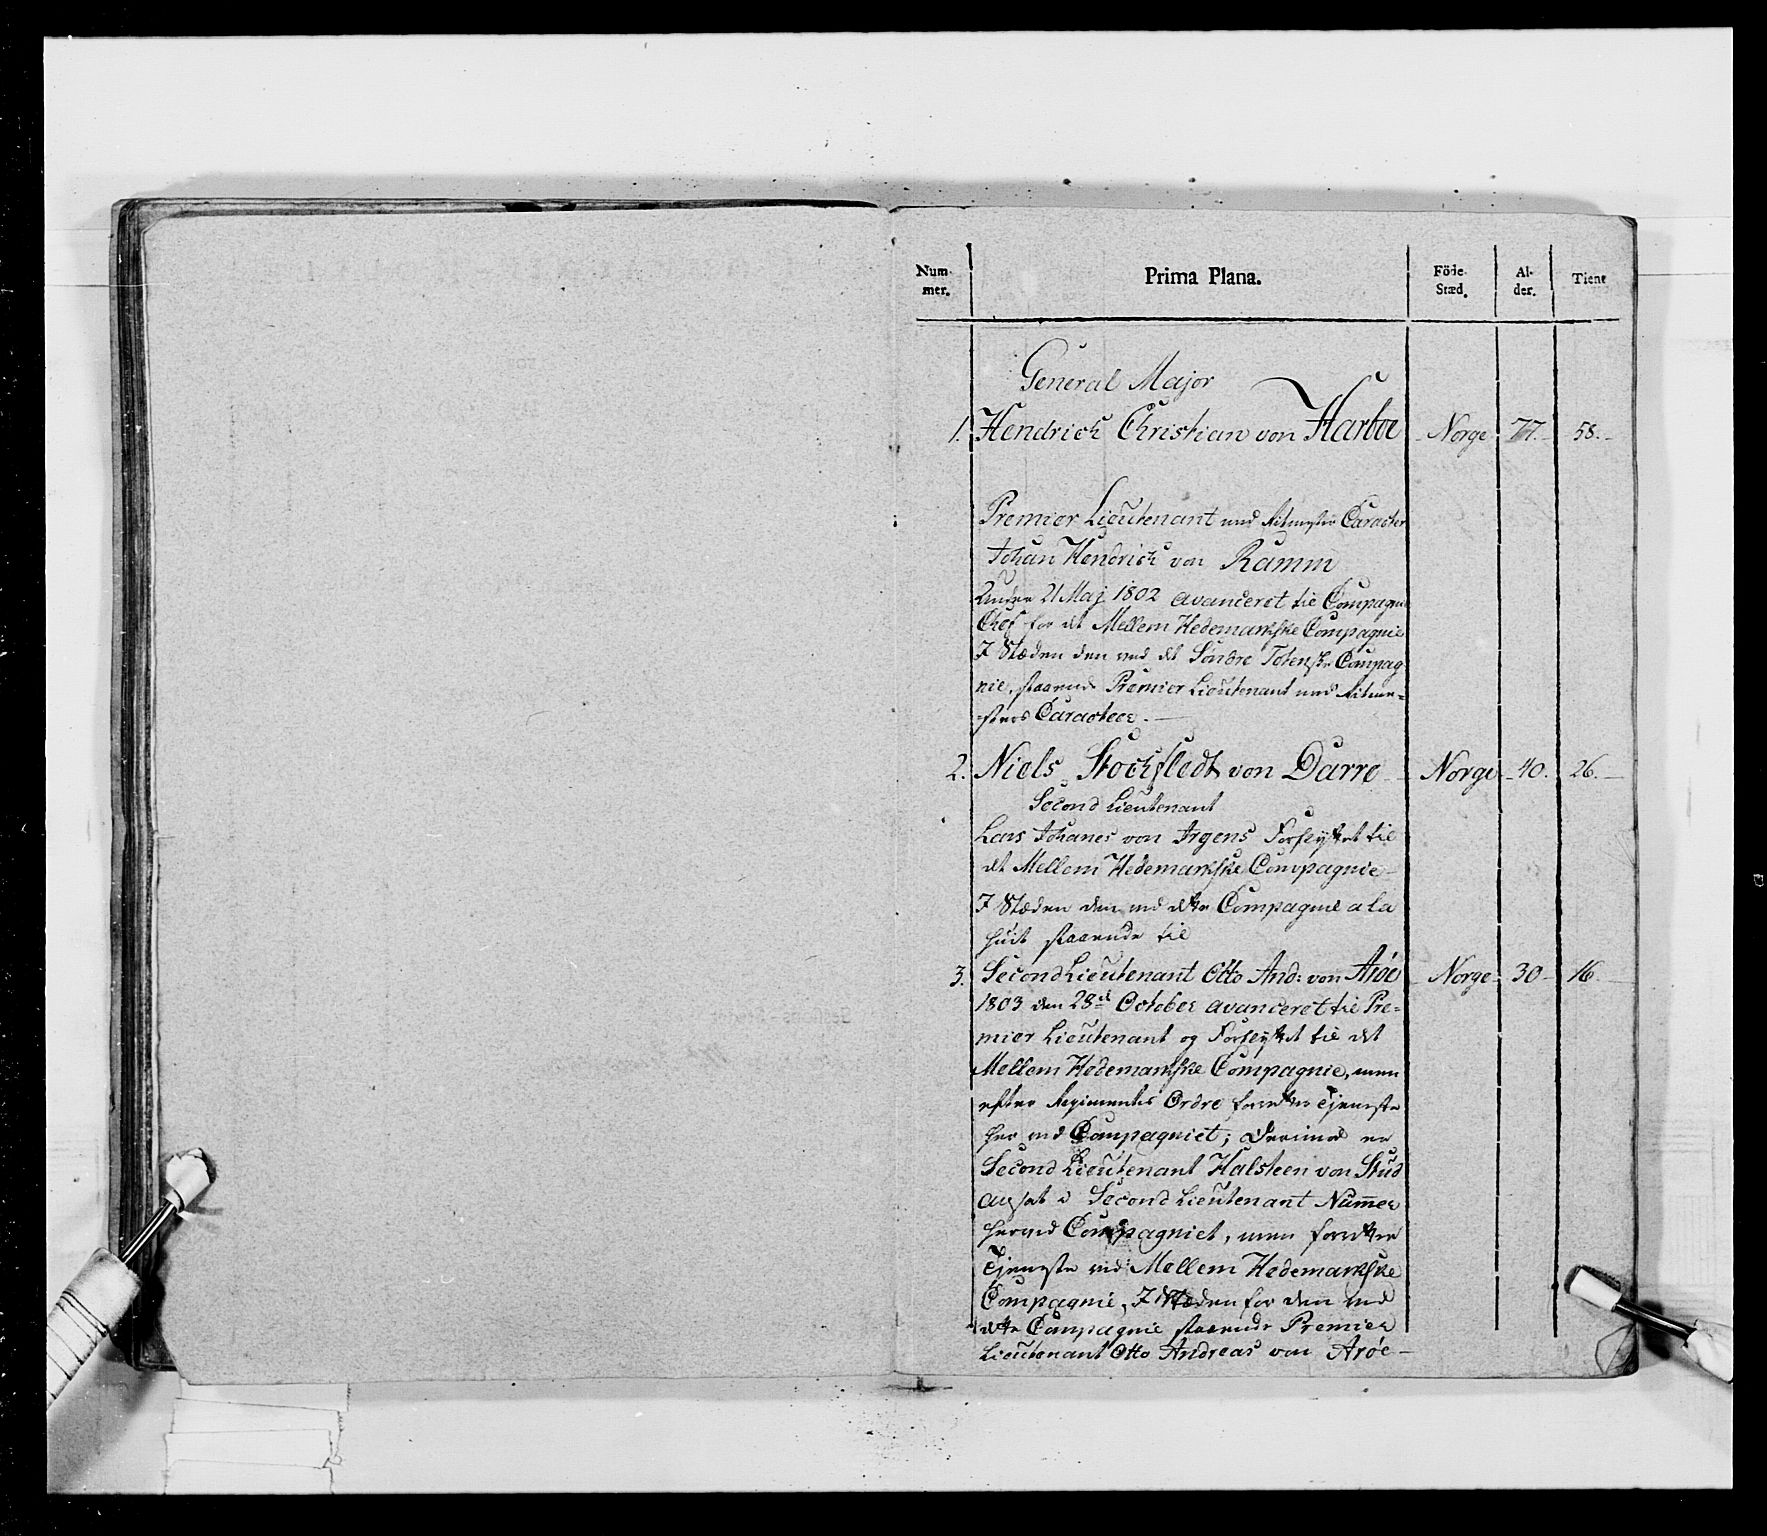 Num-
mer.
Prima Plana.
Föde
Stæd.
Al-
der.
Tient
General Major
1. Hendrich Christian von Harboe Norge 77. 58.
Premier Lieutenant med Ritmester Caracter
Johan Hendrich von Ramm
Under 21 Maj 1802 avanceret til Compagnie
Chef for det Mellem Hedemarkske Compagnie
I Stæden den ved det Søndre Totenske Compag
nie, staaende Premier Lieutenant med Ritme-
sters Caracteer.
2. Niels Stochfledt von Darre Norge 40. 26.
Second Lieutenant
Lars Johanes von Irgens Forflyttet til
det Mellem Hedemarkske Compagnie
I Stæden den ved dette Compagnie a la
suit staaende til
3. Second Lieutenant Otto And: von Arøe Norge 30 16.
1803 den 28de October avanceret til Pre-
mier Lieutenant og Forflyttet til det
Mellem Hedemarkske Compagnie, men
efter Regimentets Ordre forretter Tjeneste
her ved Compagniet; Derimod er
Second Lieutenant Halsteen von Stud
ansat i Second Lieutenant Nummer
herved Compagniet, men forretter
Tjeneste ved Mellem Hedemarkske
Compagnie, I Stæden for den ved
dette Compagnie staaende Premier
Lieutenant Otto Andreas von Arøe